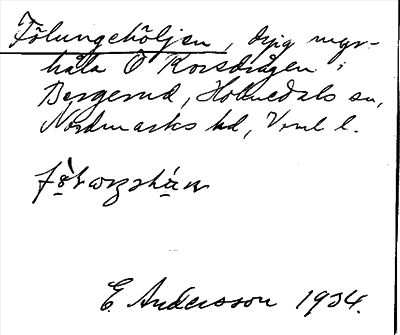 Fölungehöljen, dyig myr-
håla Ö Korsdrågen i
Bergerud, Holmedals sn,
Nordmarks hd, Vrml l.
E. Andersson 1934.